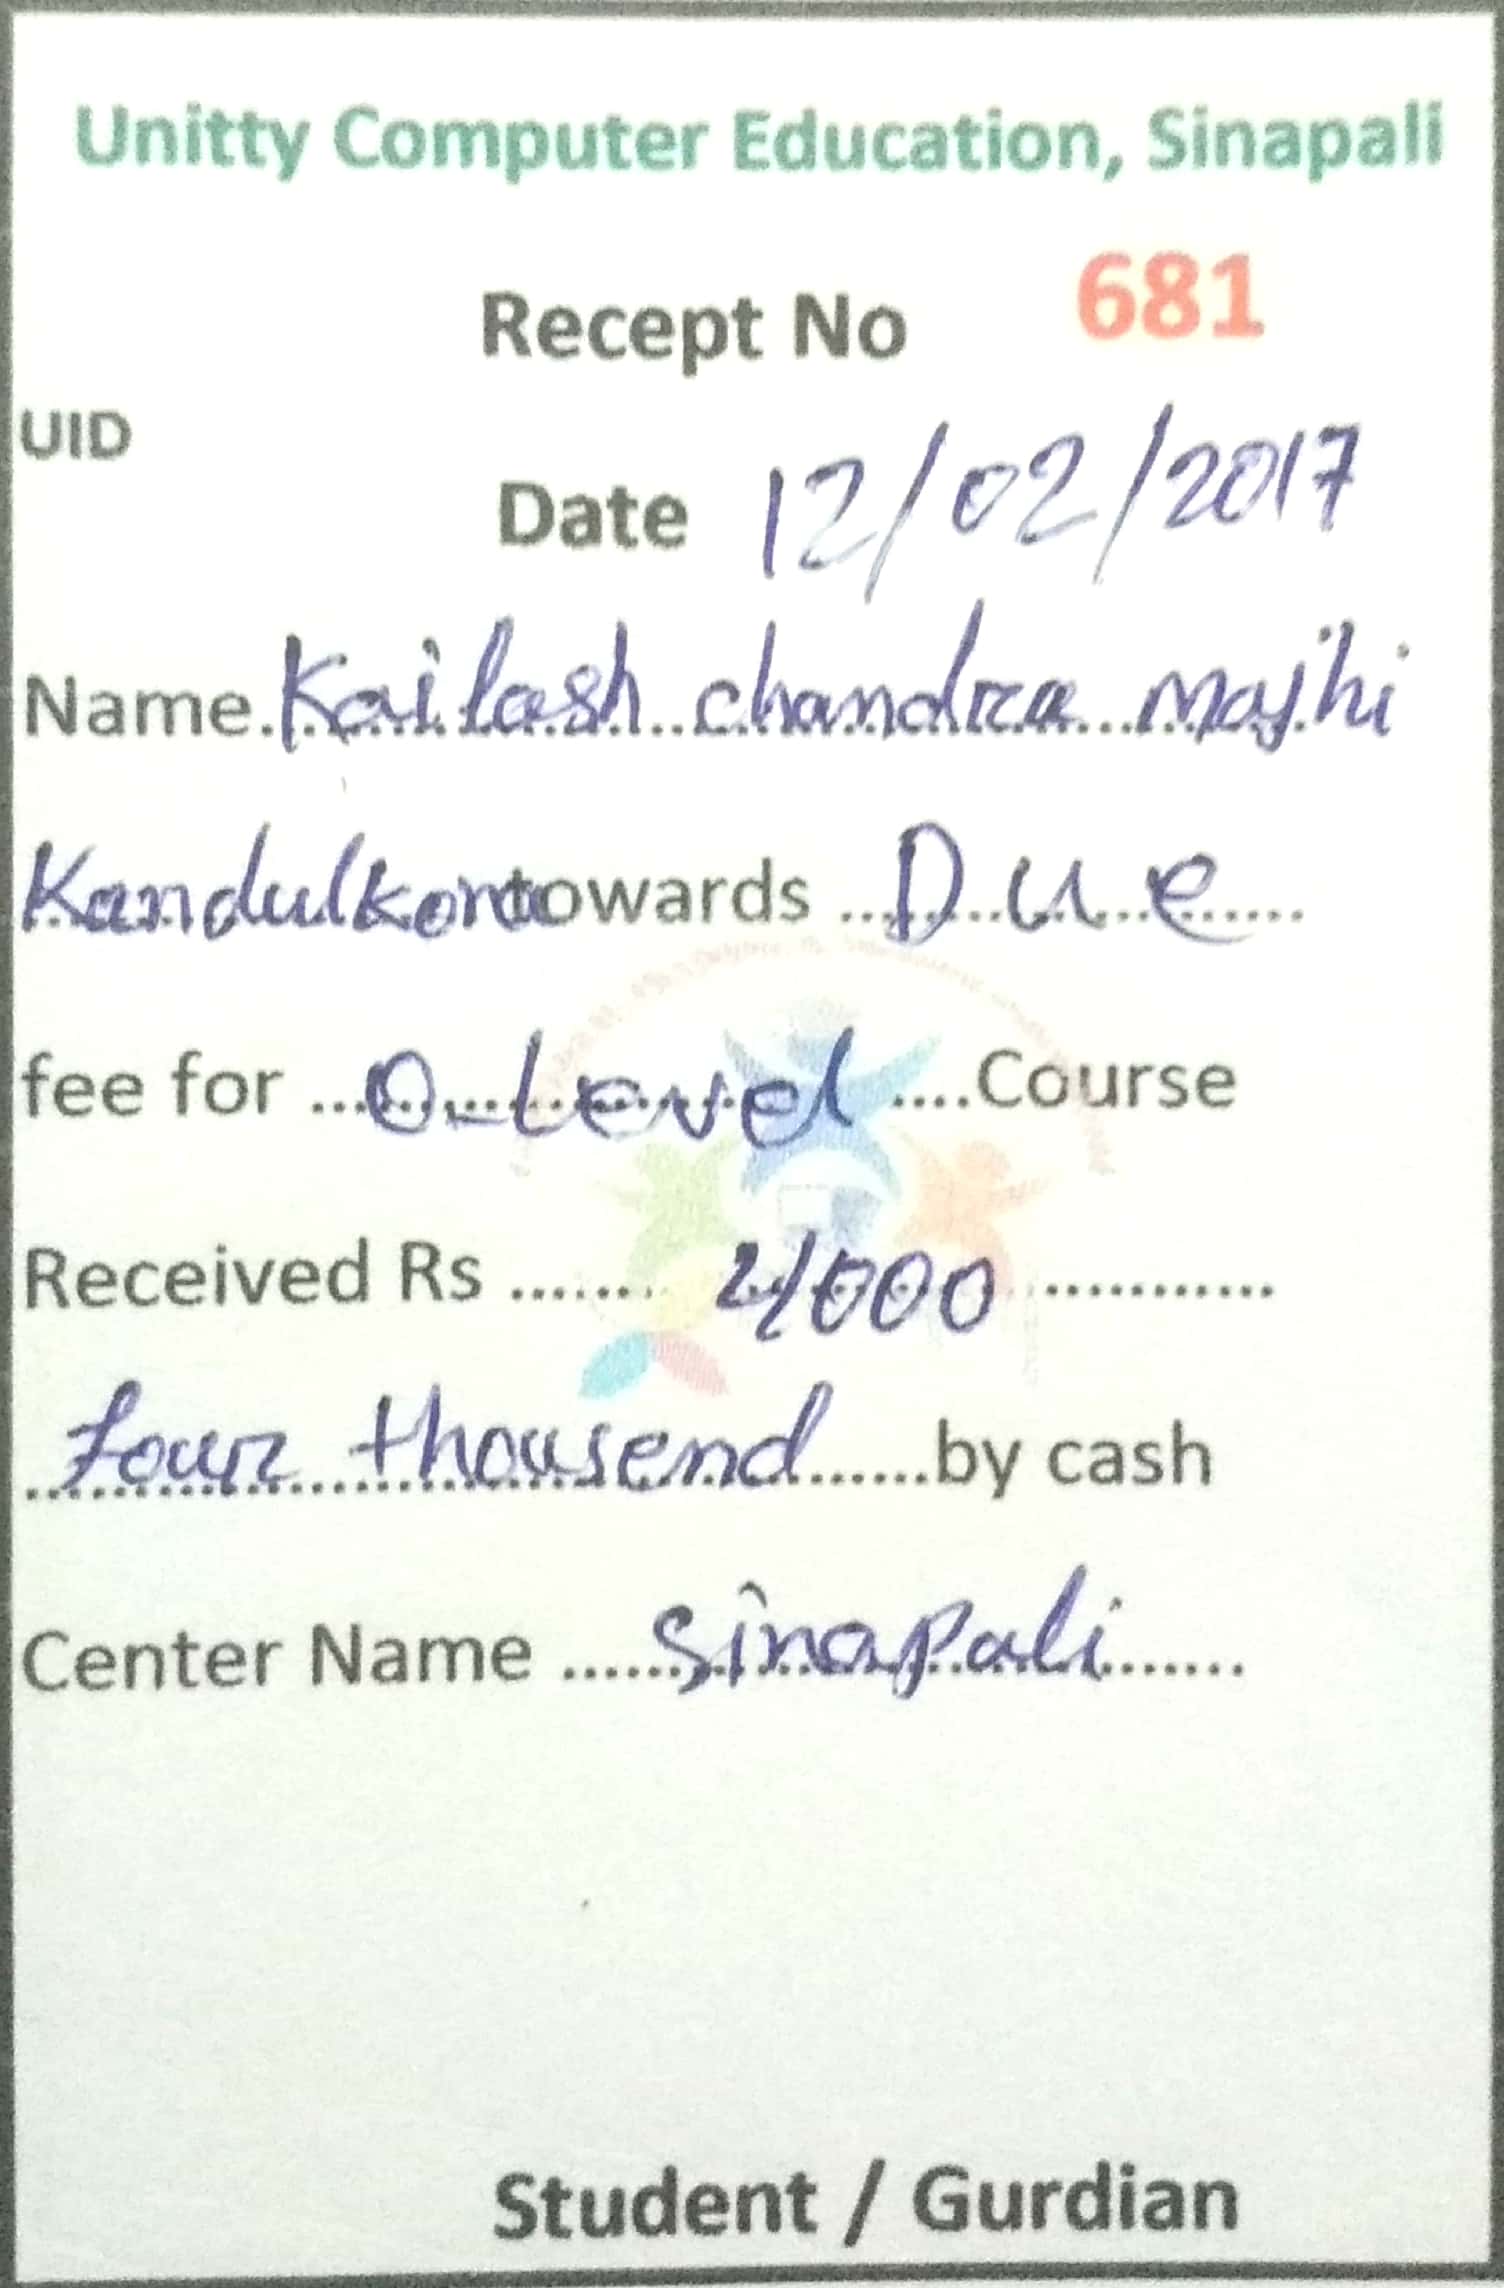 Unitty Computer Education, Sinapali
Recept No 681
UID
Date 12/02/2017
Name.Kailash chandra majhi
Kandulkona towards ...Due......
fee for ...O-Level ....Course
Received Rs ....... 4000 ............
four thousend......by cash
Center Name ......Sinapali.......
Student / Gurdian